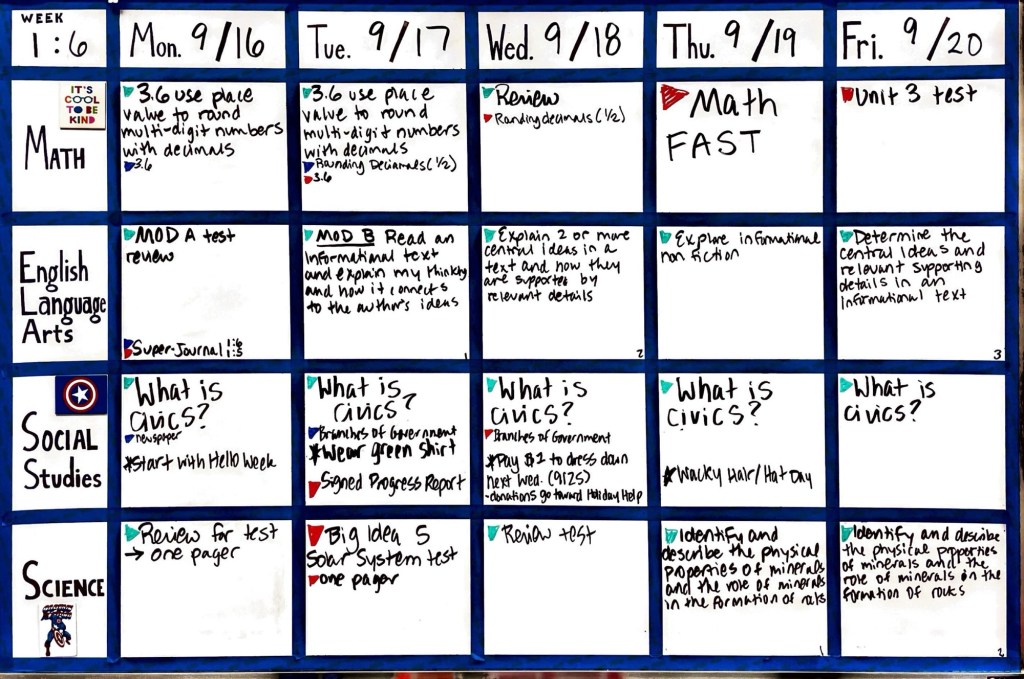 WEEK
1:6
Mon. 9/16
Tue. 9/17
Wed. 9/18
Thu. 9/19
Fri. 9/20
IT'S
COOL
TO BE
KIND
MATH
3.6 use place
value to round
multi-digit numbers
with decimals
3.6
3.6 use place
value to round
multi-digit numbers
with decimals
Rounding Decimals (1/2)
3.6
Review
Rounding decimals (1/2)
Math
FAST
Unit 3 test
English
Language
Arts
MOD A test
review
Super-Journal 1:6
1:5
MOD B Read an
informational text
and explain my thinking
and how it connects
to the author's ideas
1
Explain 2 or more
central ideas in a
text and how they
are supported by
relevant details
2
Explore informational
non fiction
Determine the
central ideas and
relevant supporting
details in an
informational text
3
SOCIAL
Studies
What is
civics?
newspaper
*Start with Hello Week
What is
civics?
Branches of Government
*Wear green shirt
Signed Progress Report
What is
civics?
Branches of Government
*Pay $1 to dress down
next Wed. (9/25)
-donations go toward Holiday Help
What is
civics?
*Wacky Hair/Hat Day
What is
civics?
SCIENCE
Review for test
→ one pager
Big Idea 5
Solar System test
one pager
Review test
Identify and
describe the physical
properties of minerals
and the role of minerals
in the formation of rocks
1
Identify and describe
the physical properties
of minerals and the
role of minerals in the
formation of rocks
2